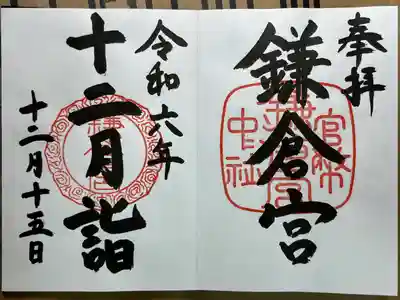 奉拝
鎌倉宮
官幣中社
鎌倉宮
令和六年
十二月詣
十二月十五日